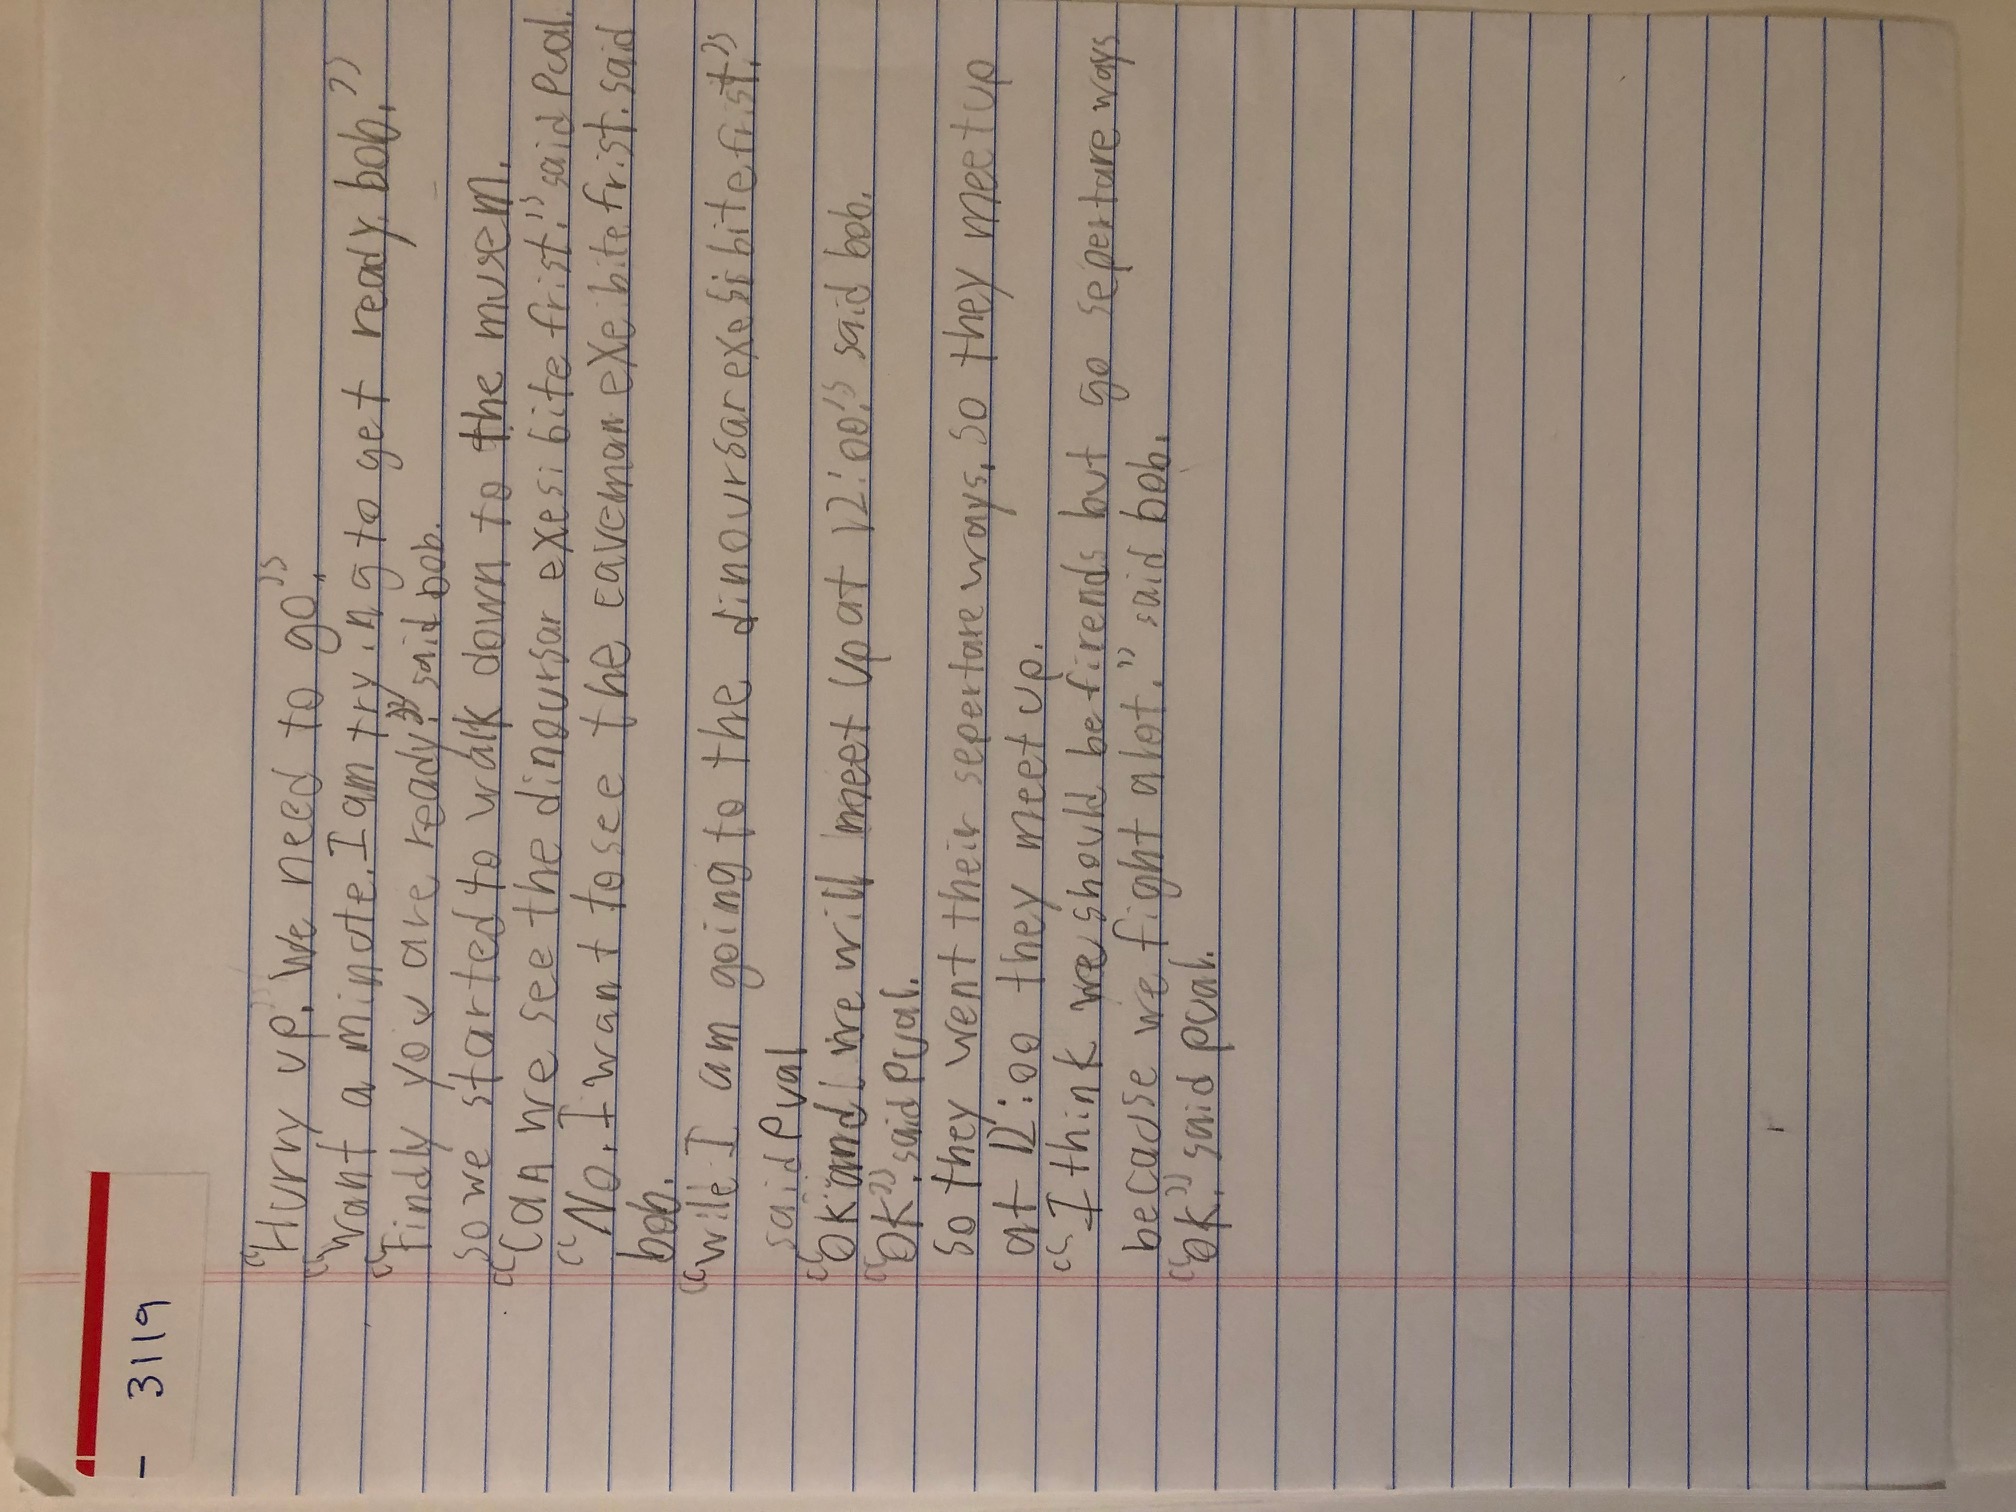 - 3119
"Hurry up. We need to go."
"Want a minote. I am trying to get ready. bob."
"Findly you are ready." said bob.
so we started to walk down to the musem.
"Can we see the dinoursar exesibite frist." said Pual.
"No. I want to see the caveman exe bite frist. said
bob.
"wile I am going to the dinoursar exesibite frist."
said Pual
"Ok and we will meet up at 12:00." said bob.
"OK". said Pual.
So they went their sepertare ways. so they meet up
at 12:00 they meet up.
"I think we should be firends but go sepertare ways
becaose we fight alot." said bob.
"Ok." said pual.